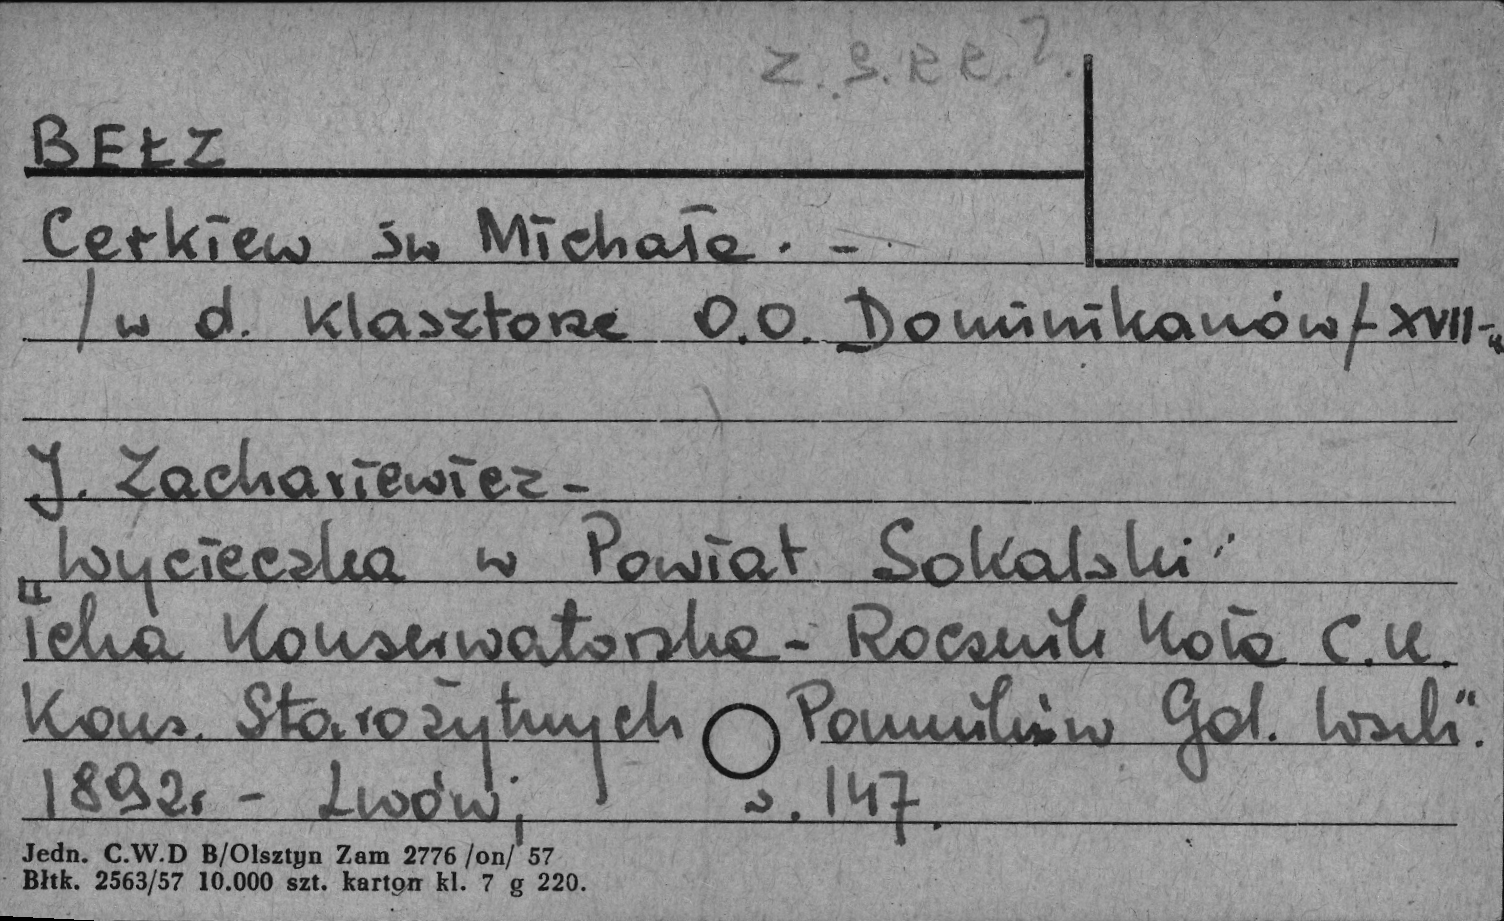 Z.S.R.R.?
BEŁZ
Cerkiew św Michała. -
/w d. Klasztorze O.O. Dominikanów/-XVII-w
J. Zachariewicz -
Wycieczka w Powiat Sokalski"
"Teka Konserwatorska - Rocznik Koła C.K.
Kons. Starożytnych Pomników Gal. Wsch".
1892r - Lwów, s. 147.
Jedn. C.W.D B/Olsztyn Zam 2776 /on/ 57
Błtk. 2563/57 10.000 szt. karton kl. 7 g 220.